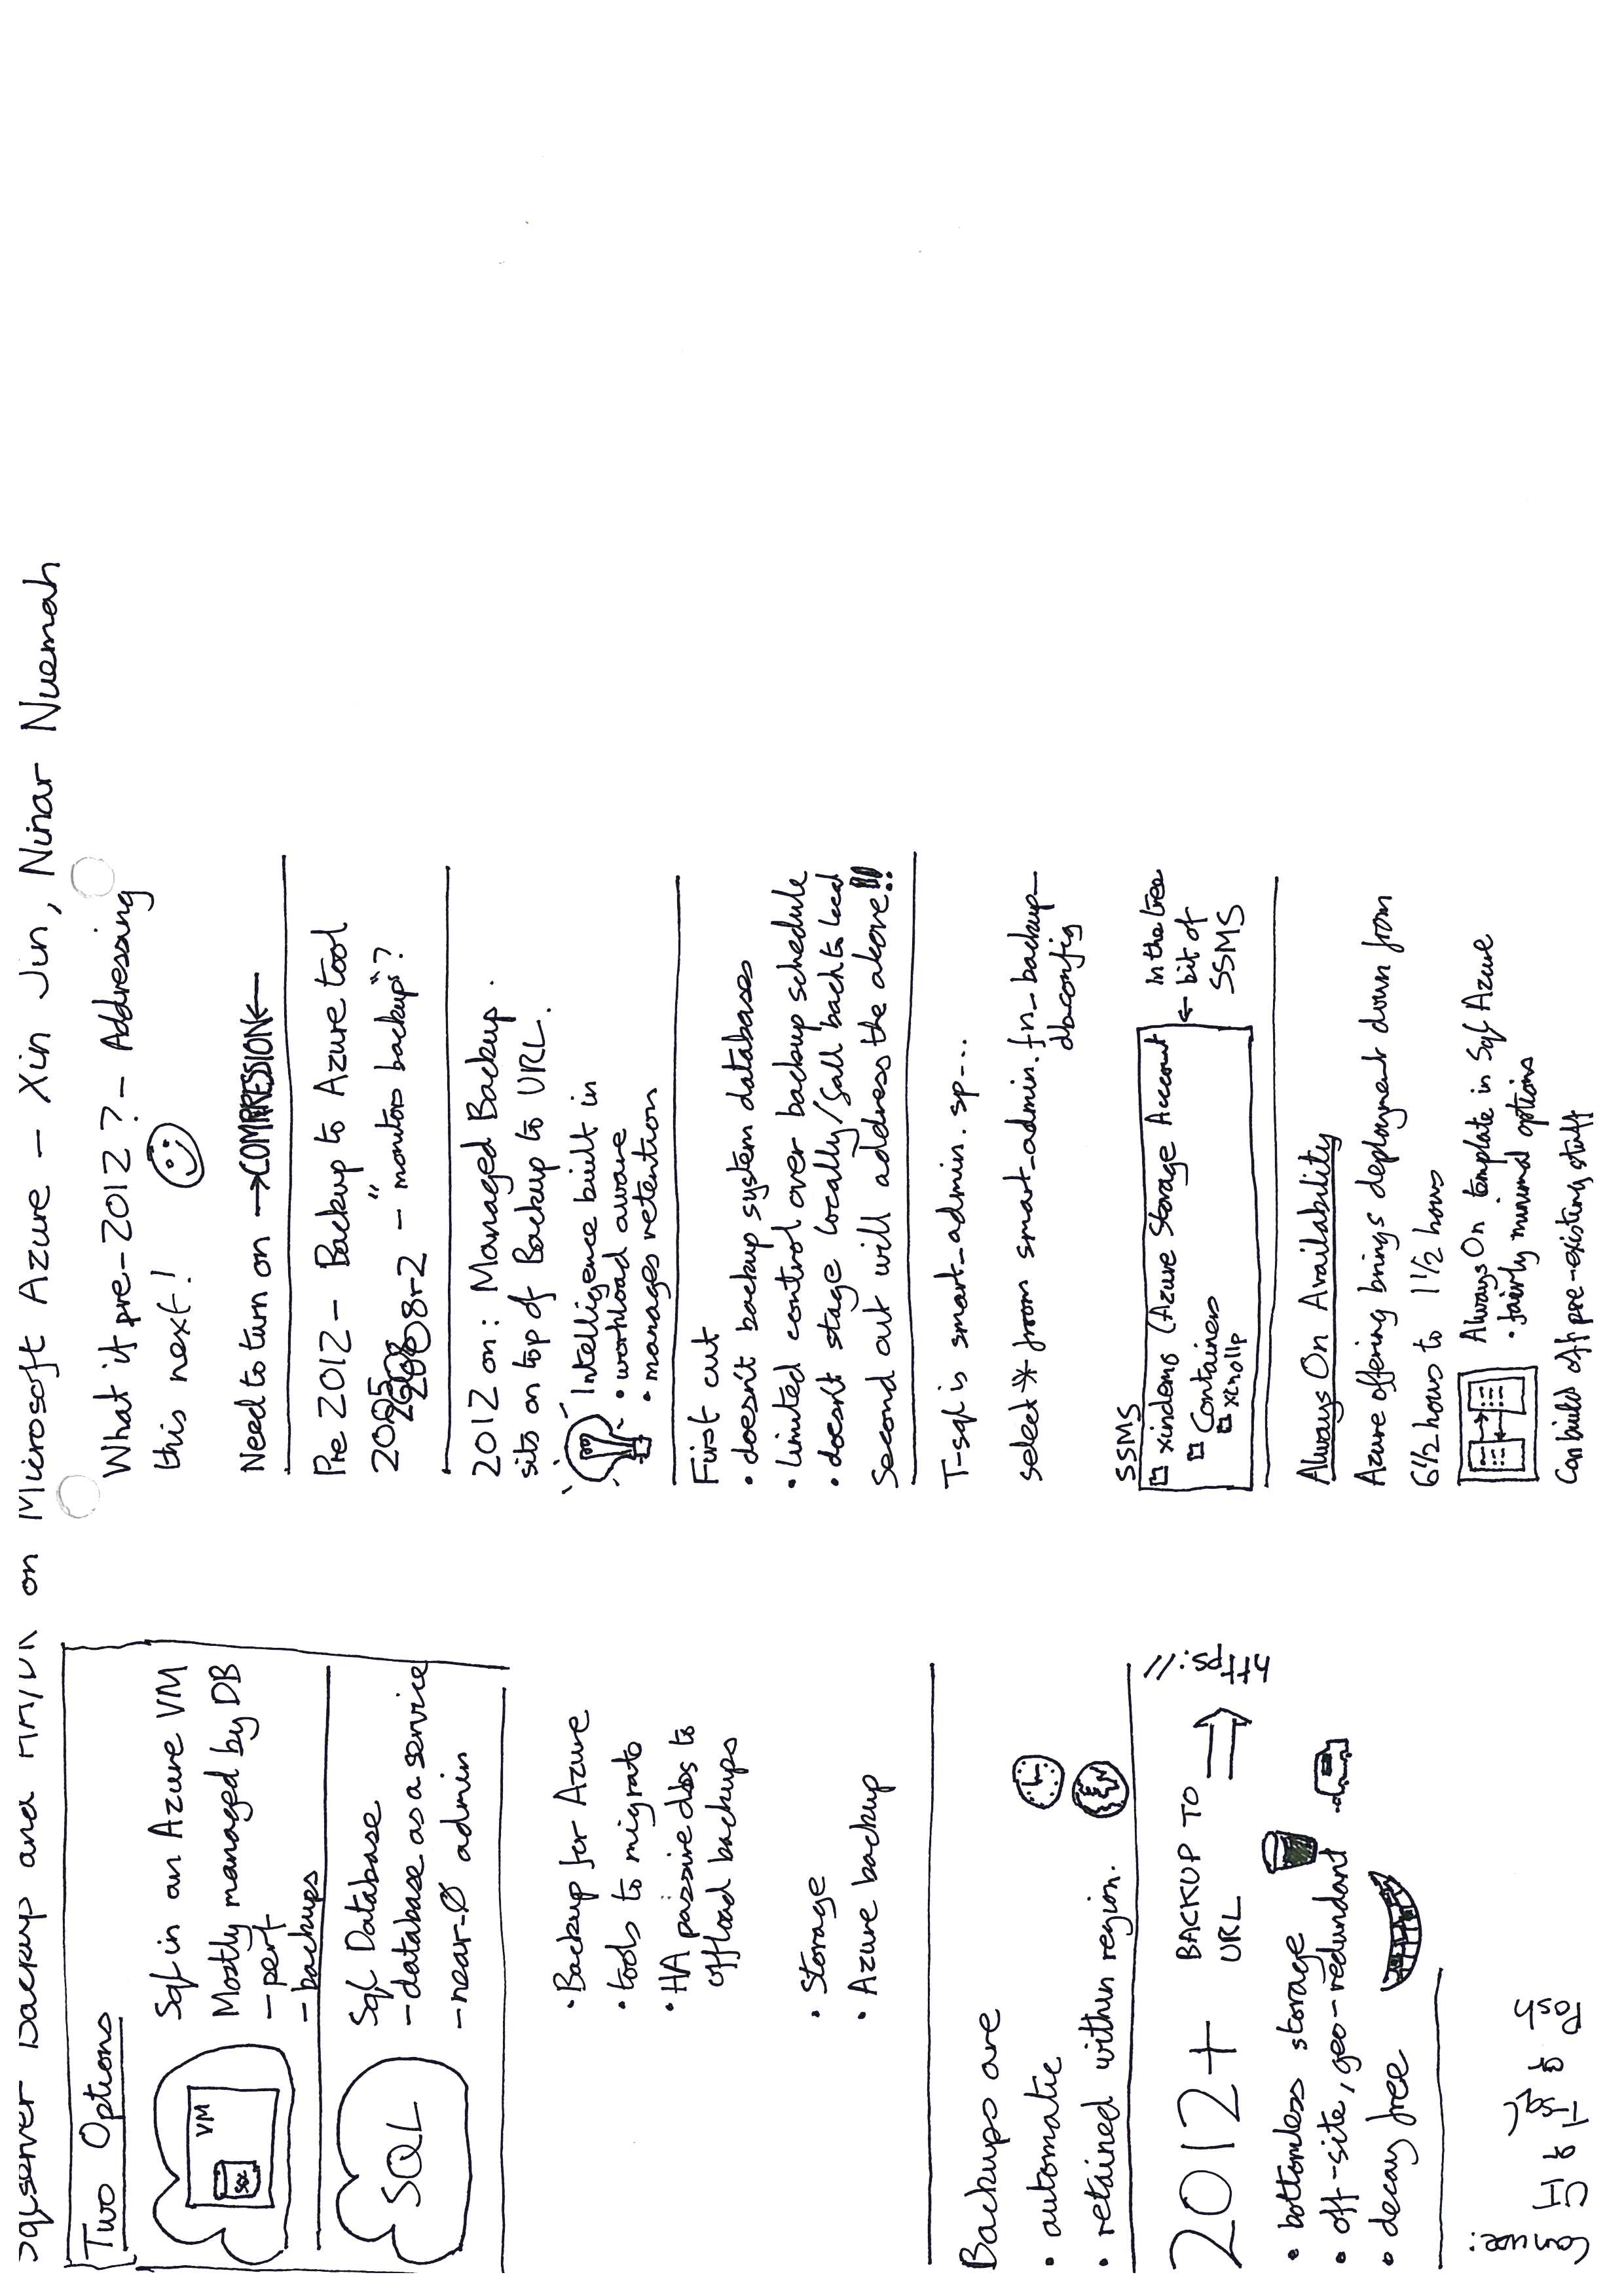 Sqlserver Backup and HA/DR on Microsoft Azure - Xin Jin, Ninar Nuemah
Two Options
VM
SQL
Sql in an Azure VM
Mostly managed by DB
- perf
- backups
SQL
Sql Database
- database as a service
- near-0 admin
• Backup for Azure
• tools to migrate
• HA passive dbs to
offload backups
• Storage
• Azure backup
Backups are
• automatic
• retained within region.
2012+
BACKUP TO
URL
https://
• bottomless storage
• off-site, geo-redundant
• decay free
Can use:
UI
or
T-sql
or
Posh
What if pre-2012? - Addressing
this next!
Need to turn on →COMPRESSION←
Pre 2012 - Backup to Azure tool
2005
2008r2 - "monitors backup"?
2012 on: Managed Backup.
sits on top of Backup to URL.
Intelligence built in
• workload aware
• manages retention
First cut
• doesn't backup system databases
• limited control over backup schedule
• doesn't stage locally/fall back to local
Second cut will address the above!!
T-sql is smart_admin.sp...
select * from smart_admin.fn_backup_
db_config
SSMS
xindemo (Azure Storage Account
Containers
xcnollp
← In the tree
bit of
SSMS
Always On Availability
Azure offering brings deployment down from
6½ hours to 1½ hours
Always On template in Sql Azure
• fairly minimal options
Can build off pre-existing stuff